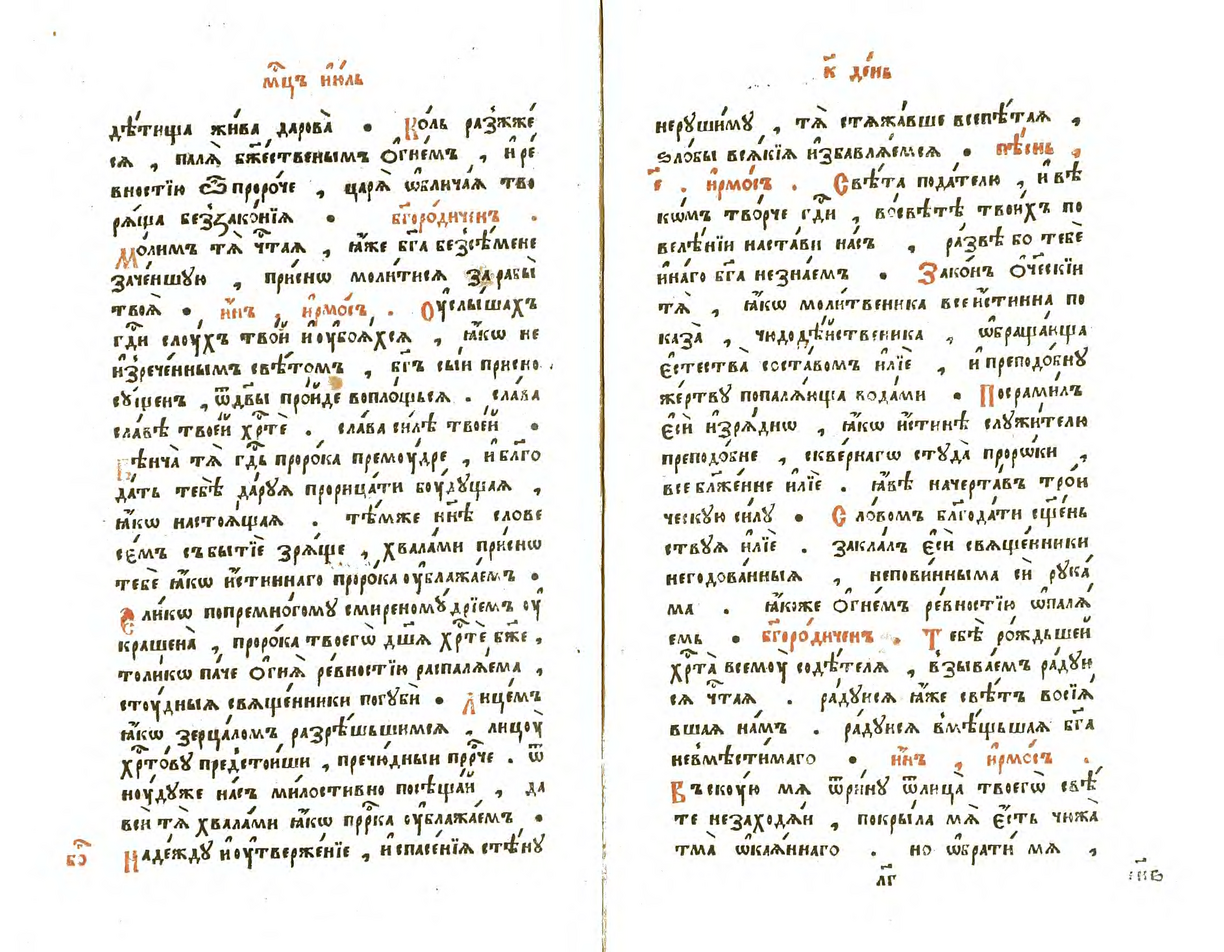 мц҃ъ і҆ю́ль
дѣ́тища жи́ва дарова̀ . Ко́ль разжже́
ся , паля̀ бж҃е́ственымъ ѻ҆гне́мъ , и҆ ре́
вностїю ѿ проро́че , царя̀ ѡ҆блича́я тво
ря́ща беззако́нїя . бг҃оро́диченъ .
Мо́лимъ тя̀ чт҃ая , ꙗ҆́же бг҃а без̾сѣ́мене
заче́ншую , при́снѡ моли́тися за рабы̀
твоя̀ . и҆́нъ , і҆рмо́съ . Оу҆слы́шахъ
гд҃и слоу́хъ тво́й и҆ оу҆боя́хся , ꙗ҆́кѡ не
и҆зрече́ннымъ свѣ́томъ , бг҃ъ сы́и присно
су́щенъ , ѿ дв҃ы про́йде воплощься . сла́ва
сла́вѣ твое́й хр҃тѐ . сла́ва си́лѣ твое́й .
Вѣнча̀ тя̀ гд҃ь проро́ка премоу́дре , и҆ бл҃го
да́ть тебѣ̀ да́руя прорица́ти боу́дущая ,
ꙗ҆́кѡ настоя́щая . тѣ́мже нн҃ѣ слове
се́мъ събытїе зря́ще , хвала́ми при́снѡ
тебѐ ꙗ҆́кѡ и҆́стиннаго проро́ка оу҆блажа́емъ .
Е҆ли́кѡ попремно́гому смиреномуⷣрїемъ оу҆
крашена̀ , проро́ка твоегѡ̀ дш҃я хр҃тѐ бж҃е ,
толи́кѡ па́че ѻ҆гня̀ ре́вностїю распаля́ема ,
стоу́дныя свяще́нники погубѝ . Лице́мъ
ꙗ҆́кѡ зерца́ломъ разрѣ́шьшимся , лицоу̀
хр҃то́ву предстои́ши , пречю́дныи прⷪ҇рче . ѿ
ноуду́же на́съ ми́лостивно посѣща́й , да
всѝ тя̀ хвала́ми ꙗ҆́кѡ прⷪ҇рка оу҆блажа́емъ .
Наде́жду и҆ оу҆твержде́нїе , и҆ спасе́нїя стѣ́ну
бо҃
к҃ де́нь
неруши́му , тя̀ стяжа́вше всепѣ́тая ,
ѕло́бы вся́кїя и҆збавля́емся . пѣ́снь ,
е҃ . і҆рмо́съ . Свѣ́та пода́телю , и҆ вѣ́
кѡмъ тво́рче гд҃и , во свѣ́тѣ твои́хъ по
велѣ́нїи наста́ви на́съ , ра́звѣ бо тебѐ
и҆на́го бг҃а не зна́емъ . Зако́нъ ѻ҆те́ческїи
тя̀ , ꙗ҆́кѡ моли́твеника все и҆́стинна по
каза̀ , чюдодѣ́йственика , ѡ҆браща́юща
є҆стества̀ соста́вомъ и҆лїѐ , и҆ преподо́бну
же́ртву попаля́юща вода́ми . Посрами́лъ
є҆сѝ и҆зря́днѡ , ꙗ҆́кѡ и҆́стинѣ служи́телю
преподо́бне , скве́рнагѡ студа̀ проро́ки ,
все бл҃же́нне и҆лїѐ . ꙗ҆́вѣ начерта́въ трои
ческую си́лу . Сло́вомъ бл҃года́ти сщ҃е́нь
ствуя и҆лїѐ . закла́лъ є҆сѝ свяще́нники
негодова́нныя , непови́нныма сѝ рука́
ма . ꙗ҆́коже ѻ҆гне́мъ ре́вностїю ѡ҆паля́
емь . бг҃оро́диченъ . Тебѣ̀ ро́ждьшей
хр҃та̀ всемоу̀ содѣ́теля , взыва́емъ ра́дуи
ся чт҃ая . ра́дуися ꙗ҆́же свѣ́тъ восїя́
вшая на́мъ . ра́дуися вмѣ́щьшая бг҃а
невмѣсти́маго . и҆́нъ , і҆рмо́съ .
Въскоу́ю мя ѿри́ну ѿ лица̀ твоегѡ̀ свѣ́
те незаходя́и , покры́ла мя̀ є҆́сть чюжа́
тма̀ ѡ҆кая́ннаго . но ѡ҆брати́ мя ,
лг